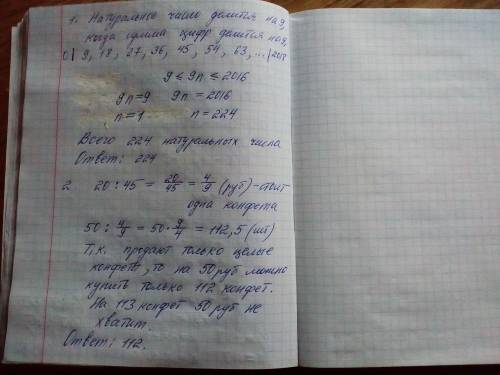 1. Натуральное число делится на 9,
когда сумма цифр делится на 9,
0 | 9, 18, 27, 36, 45, 54, 63, ... | 2017
9 ≤ 9n ≤ 2016
9n = 9 9n = 2016
n = 1 n = 224
Всего 224 натуральных числа
Ответ: 224
2. 20 : 45 = 20/45 = 4/9 (руб) - стоит
одна конфета
50 : 4/9 = 50 · 9/4 = 112,5 (шт)
Т.к. продают только целые
конфеты, то на 50 руб можно
купить только 112 конфет.
На 113 конфет 50 руб не
хватит.
Ответ: 112.